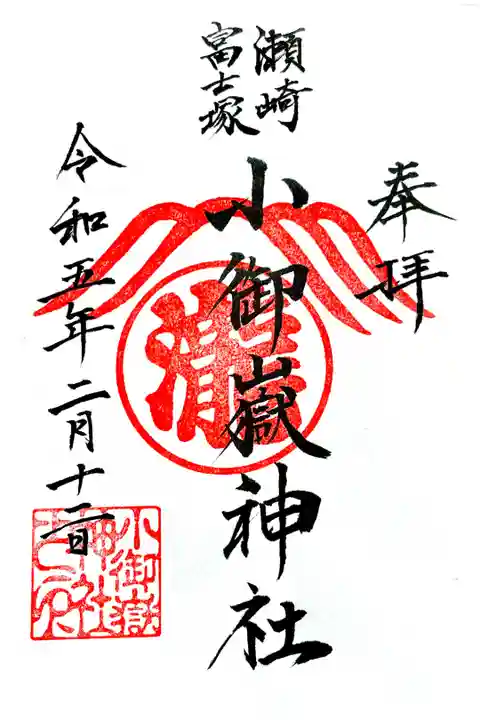 奉拝
瀬崎
富士塚
小御嶽神社
令和五年二月十二日
清
小御嶽
神社